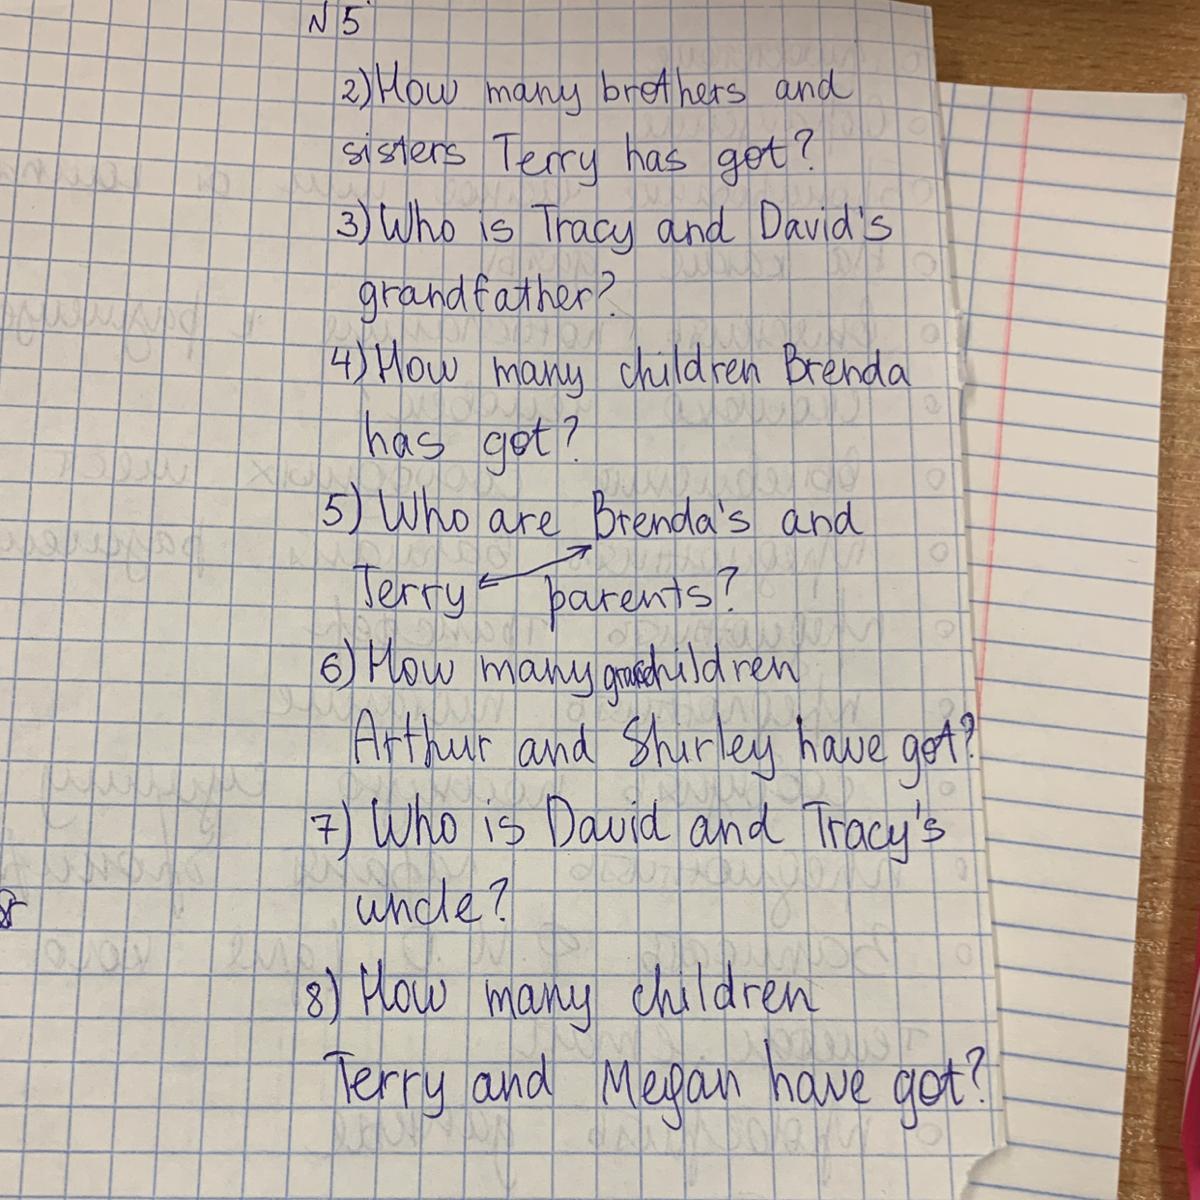 N 5
2) How many brothers and
sisters Terry has got?
3) Who is Tracy and David's
grandfather?
4) How many children Brenda
has got?
5) Who are Brenda's and
Terry parents?
6) How many grandchildren
Arthur and Shirley have got?
7) Who is David and Tracy's
uncle?
8) How many children
Terry and Megan have got?